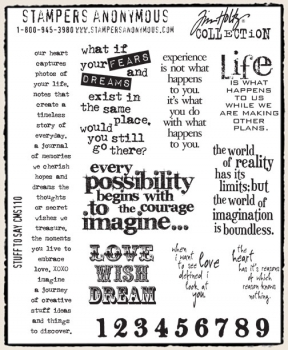 STAMPERS ANONYMOUS
1-800-945-3980 WWW.STAMPERSANONYMOUS.COM
Tim Holtz
COLLECTION
our heart
captures
photos of
your life,
notes that
create a
timeless
story of
everyday.
a journal
of memories
we cherish
hopes and
dreams the
thoughts
or secret
wishes we
treasure.
the moments
you live to
embrace
love. XOXO
imagine
a journey
of creative
stuff ideas
and things
to discover.
STUFF TO SAY CMS110
what if
your FEARS
and
DREAMS
exist in
the same
place.
would
you still
go there?
experience
is not what
happens
to you.
it's what
you do
with what
happens
to you.
life
IS WHAT
HAPPENS TO
US WHILE WE
ARE MAKING
OTHER
PLANS.
every
possibility
begins with
the courage
to
imagine...
the world
of reality
has its
limits;but
the world of
imagination
is boundless.
LOVE
WISH
DREAM
when
i want
to see love
defined i
look at
you
the
heart
has it's reasons
of which
reason knows
nothing.
1 2 3 4 5 6 7 8 9